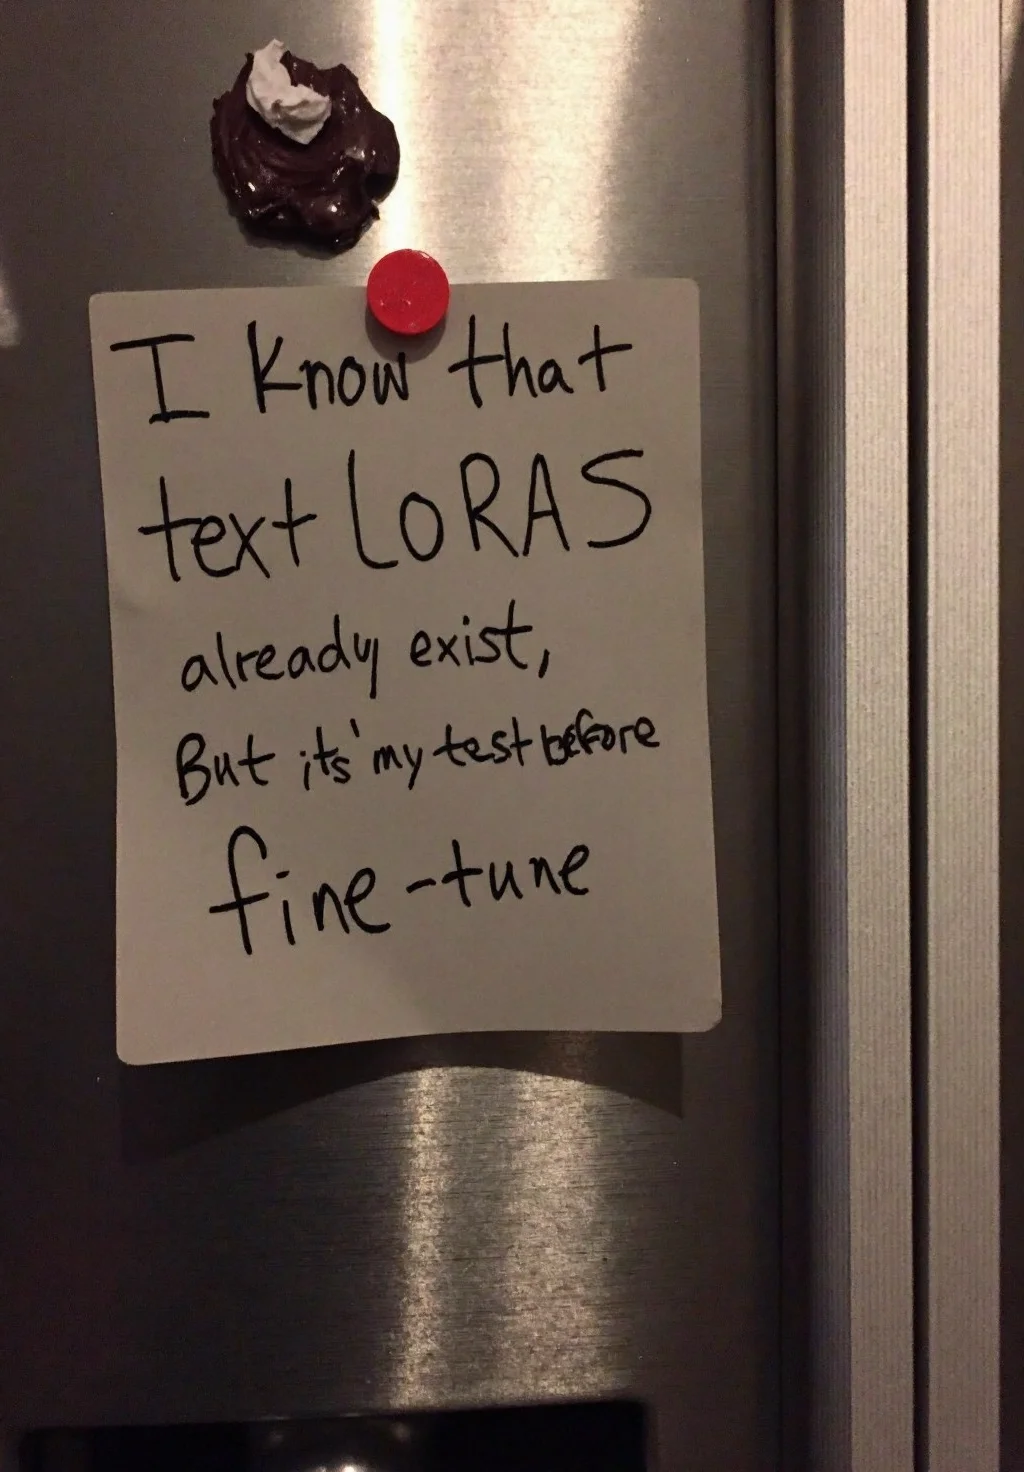 I know that
text LoRAS
already exist,
But its' my test before
fine-tune